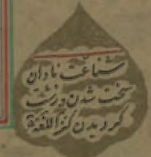 شناعت نادان
سخت شدن و زشت
گردیدن کنز اللغة